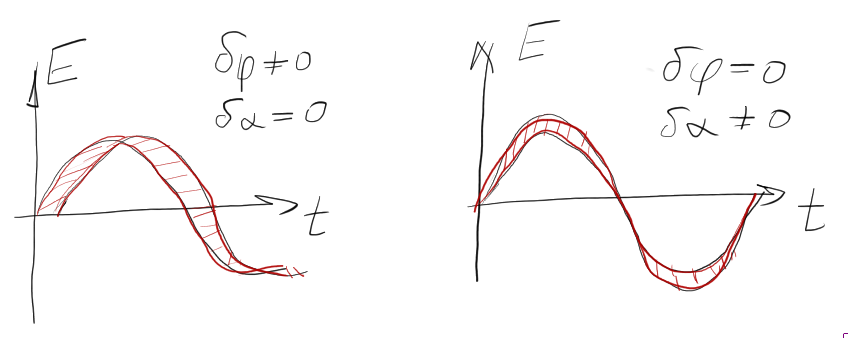 E
δφ ≠ 0
δα = 0
t
E
δφ = 0
δα ≠ 0
t